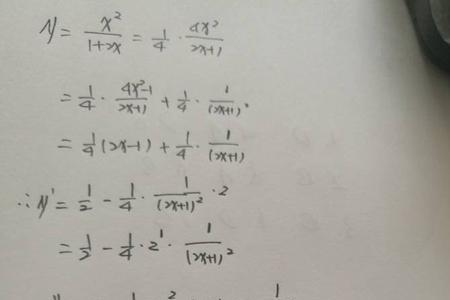 y = x²/(1+2x) = 1/4 · 4x²/(2x+1)
= 1/4 · (4x²-1)/(2x+1) + 1/4 · 1/(2x+1)
= 1/4 (2x-1) + 1/4 · 1/(2x+1)
∴ y' = 1/2 - 1/4 · 1/(2x+1)² · 2
= 1/2 - 1/4 · 2¹ · 1/(2x+1)²